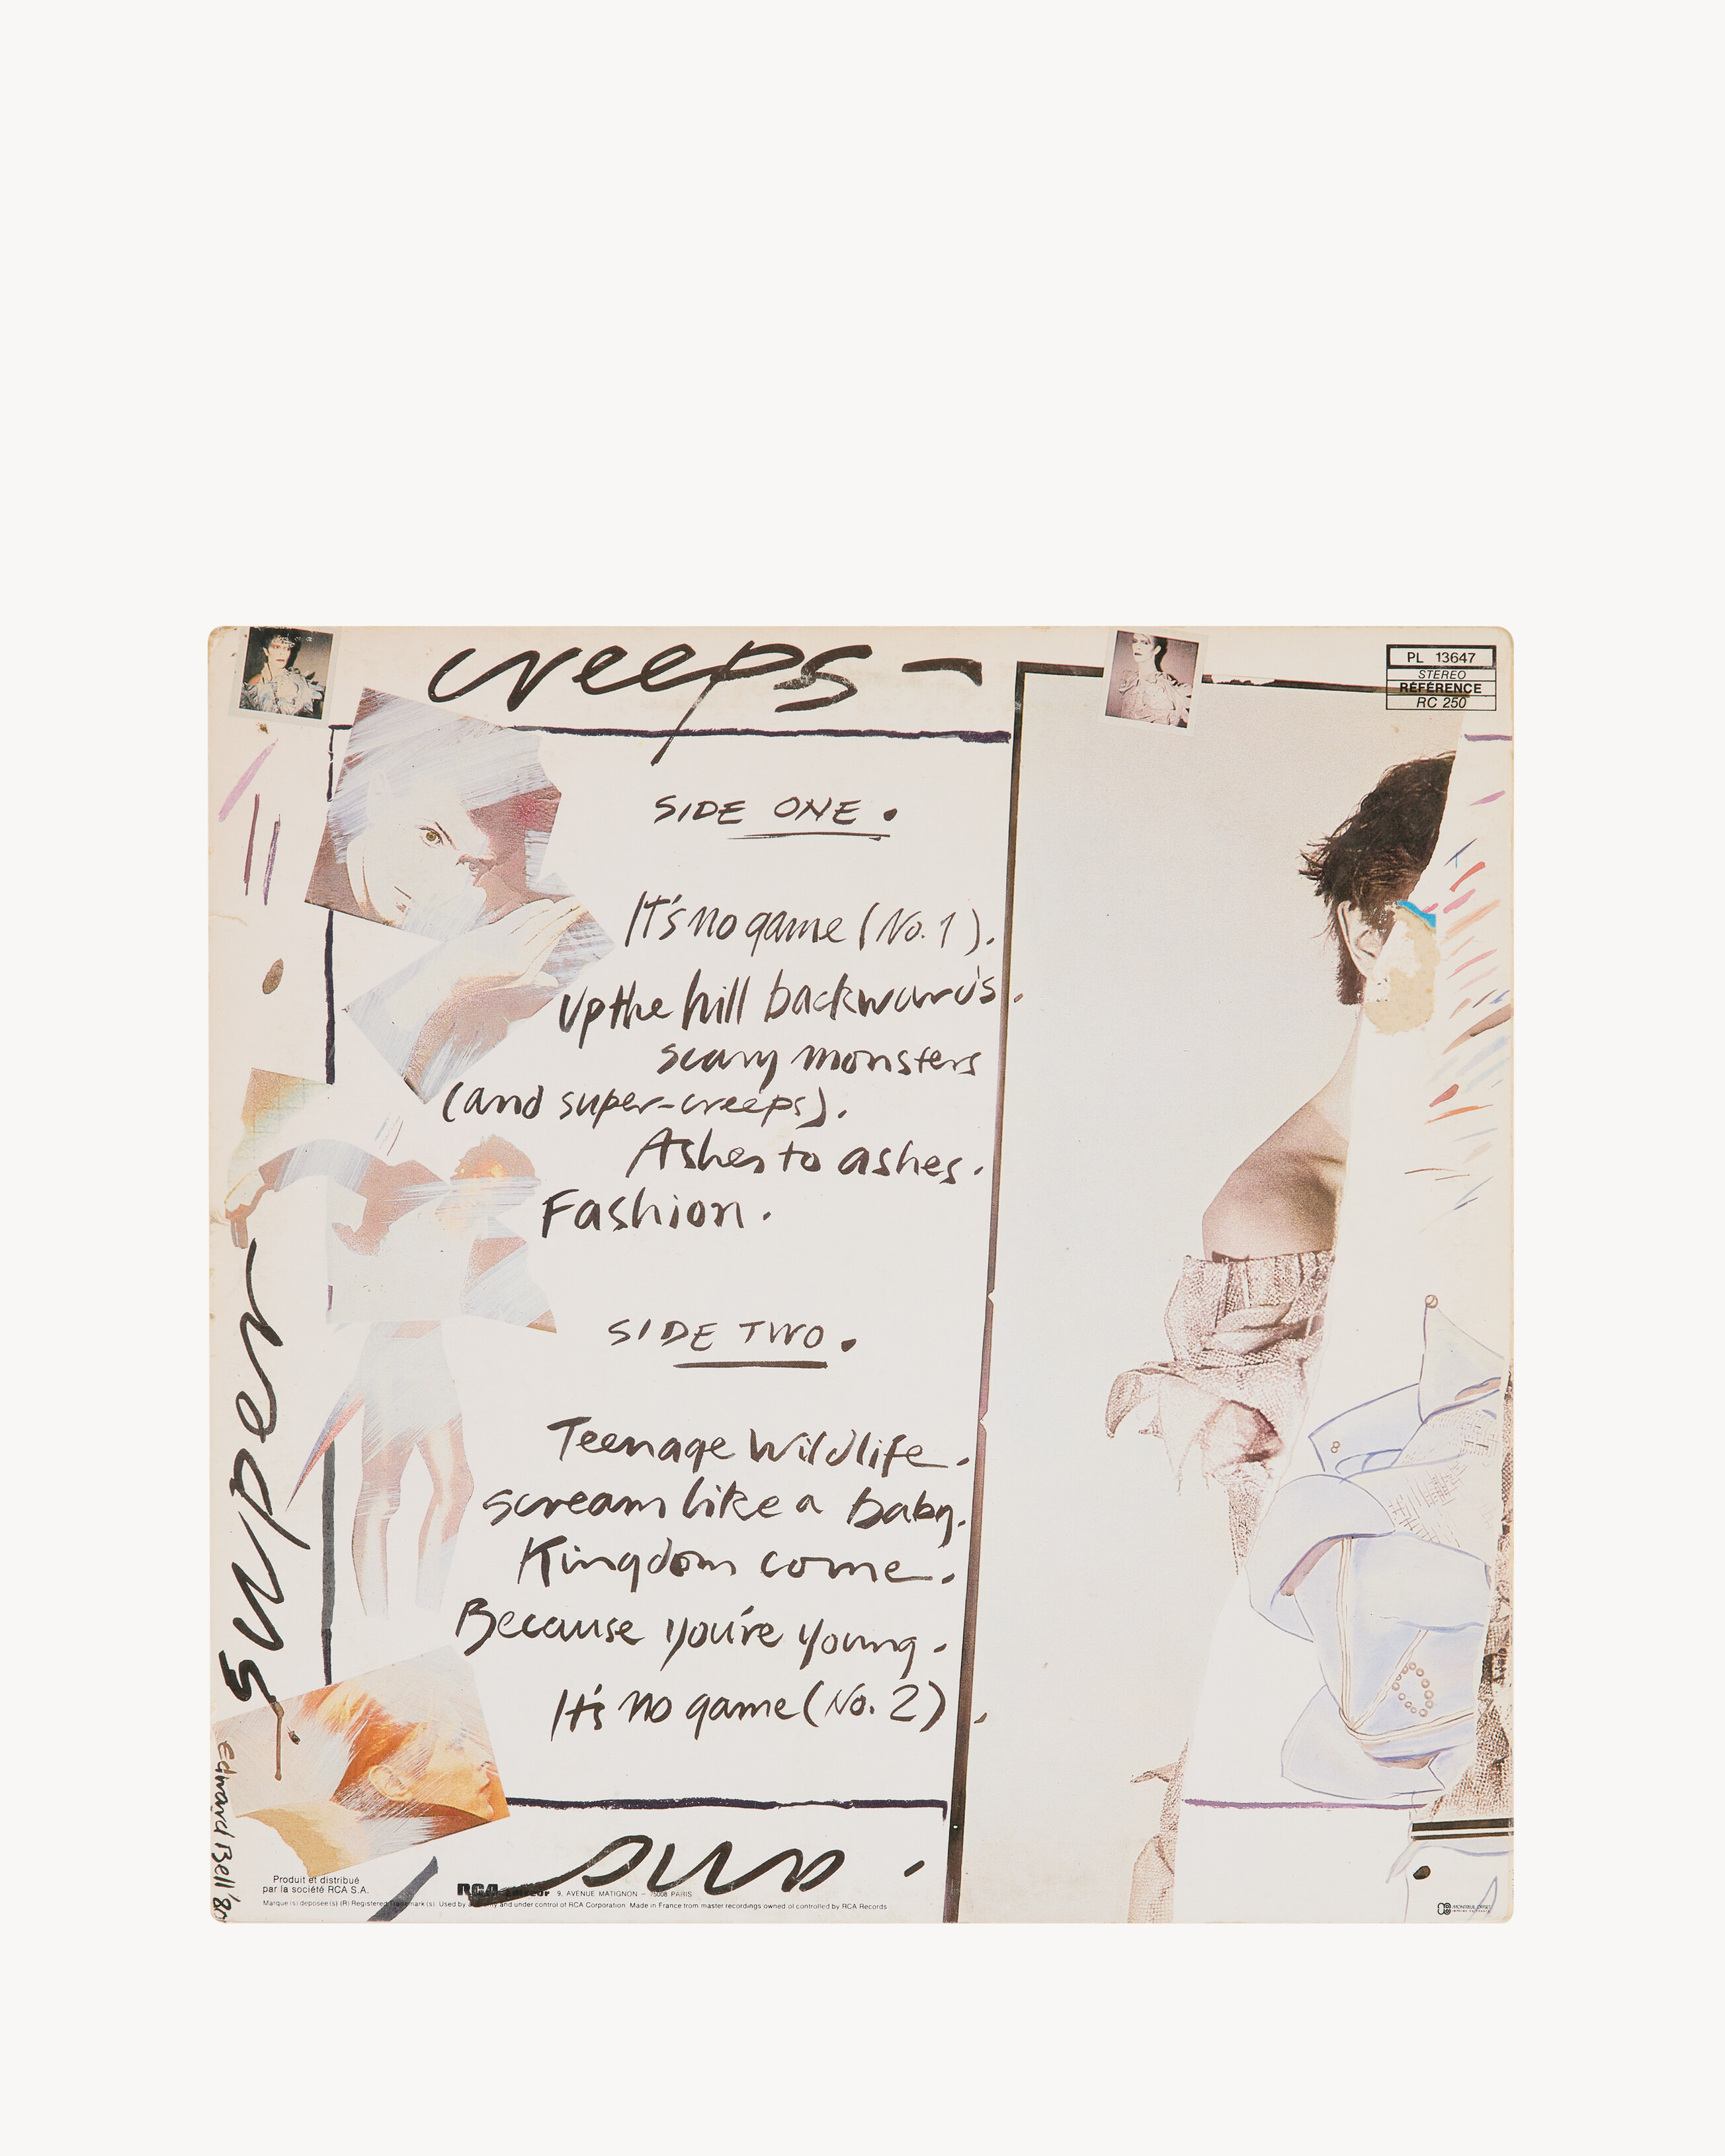 creeps –
PL 13647
STEREO
RÉFÉRENCE
RC 250
SIDE ONE.
It's no game (No. 1).
Up the hill backwards.
scary monsters
(and super-creeps).
Ashes to ashes.
Fashion.
SIDE TWO.
Teenage wildlife.
scream like a baby.
Kingdom come.
Because you're young.
It's no game (No. 2).
super
and.
Edward Bell '80
Produit et distribué
par la société RCA S.A.
RCA 9, AVENUE MATIGNON – 75008 PARIS
Marque(s) deposee(s) (R) Registered Trademark(s). Used by and under control of RCA Corporation. Made in France from master recordings owned or controlled by RCA Records